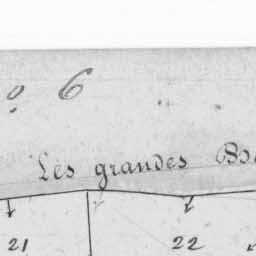 o 6
Les grandes
21 22